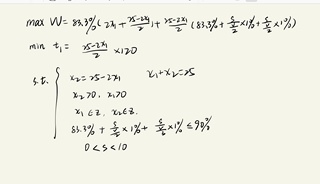 max W = 83.3% (2x₁ + (25-2x₁)/2) + (25-2x₁)/2 (83.3% + s/2 × 1% + s/2 × 1%)
min t₁ = (25-2x₁)/2 × 120
s.t. { x₂ = 25-2x₁ x₁+x₂=25
x₂>0, x₁>0
x₁∈Z, x₂∈Z.
83.3% + s/6 × 1% + s/6 × 1% ≤ 90%
0<s<10